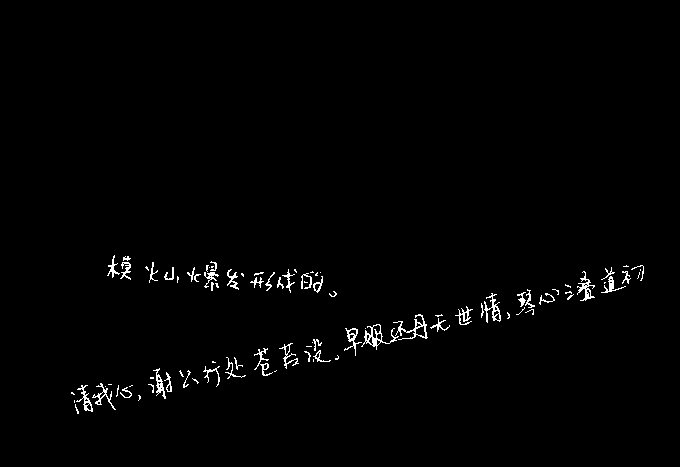 模火山爆发形成的。
清我心,谢公行处苍苔没。早服还丹无世情,琴心三叠道初